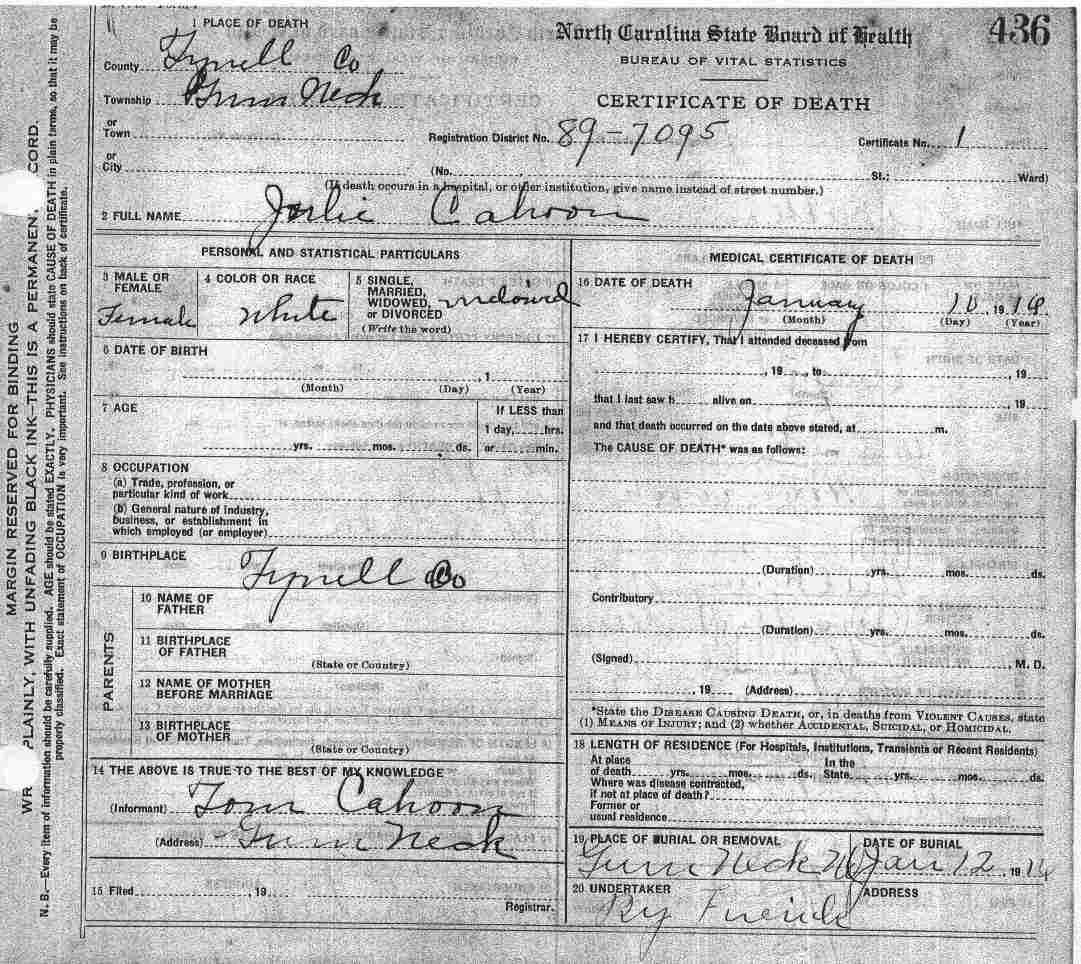 1 PLACE OF DEATH
North Carolina State Board of Health
436
County Tyrrell Co
BUREAU OF VITAL STATISTICS
Township Gum Neck
CERTIFICATE OF DEATH
or
Town
Registration District No. 89-7095
Certificate No. 1
or
City
(No. St.; Ward)
(If death occurs in a hospital, or other institution, give name instead of street number.)
2 FULL NAME Julie Cahoon
PERSONAL AND STATISTICAL PARTICULARS
3 MALE OR FEMALE
Female
4 COLOR OR RACE
White
5 SINGLE,
MARRIED,
WIDOWED,
or DIVORCED
(Write the word)
widowed
6 DATE OF BIRTH
, 1
(Month) (Day) (Year)
7 AGE
If LESS than
1 day, hrs.
yrs. mos. ds. or min.
8 OCCUPATION
(a) Trade, profession, or
particular kind of work
(b) General nature of industry,
business, or establishment in
which employed (or employer)
9 BIRTHPLACE
Tyrrell Co
PARENTS
10 NAME OF
FATHER
11 BIRTHPLACE
OF FATHER
(State or Country)
12 NAME OF MOTHER
BEFORE MARRIAGE
13 BIRTHPLACE
OF MOTHER
(State or Country)
14 THE ABOVE IS TRUE TO THE BEST OF MY KNOWLEDGE
(Informant) Tom Cahoon
(Address) Gum Neck
15 Filed , 19
Registrar.
MEDICAL CERTIFICATE OF DEATH
16 DATE OF DEATH
January 10, 1914
(Month) (Day) (Year)
17 I HEREBY CERTIFY, That I attended deceased from
, 19 , to , 19
that I last saw h alive on , 19
and that death occurred on the date above stated, at m.
The CAUSE OF DEATH* was as follows:
(Duration) yrs. mos. ds.
Contributory
(Duration) yrs. mos. ds.
(Signed) , M. D.
, 19 (Address)
*State the DISEASE CAUSING DEATH, or, in deaths from VIOLENT CAUSES, state
(1) MEANS OF INJURY; and (2) whether ACCIDENTAL, SUICIDAL, OR HOMICIDAL.
18 LENGTH OF RESIDENCE (For Hospitals, Institutions, Transients or Recent Residents)
At place In the
of death yrs. mos. ds. State yrs. mos. ds.
Where was disease contracted,
if not at place of death?
Former or
usual residence
19 PLACE OF BURIAL OR REMOVAL
Gum Neck NC
DATE OF BURIAL
Jan 12, 1914
20 UNDERTAKER
By Friends
ADDRESS
MARGIN RESERVED FOR BINDING
PLAINLY, WITH UNFADING BLACK INK—THIS IS A PERMANEN
CORD.
N. B.—Every item of information should be carefully supplied. AGE should be stated EXACTLY. PHYSICIANS should state CAUSE OF DEATH in plain terms, so that it may be
properly classified. Exact statement of OCCUPATION is very important. See instructions on back of certificate.